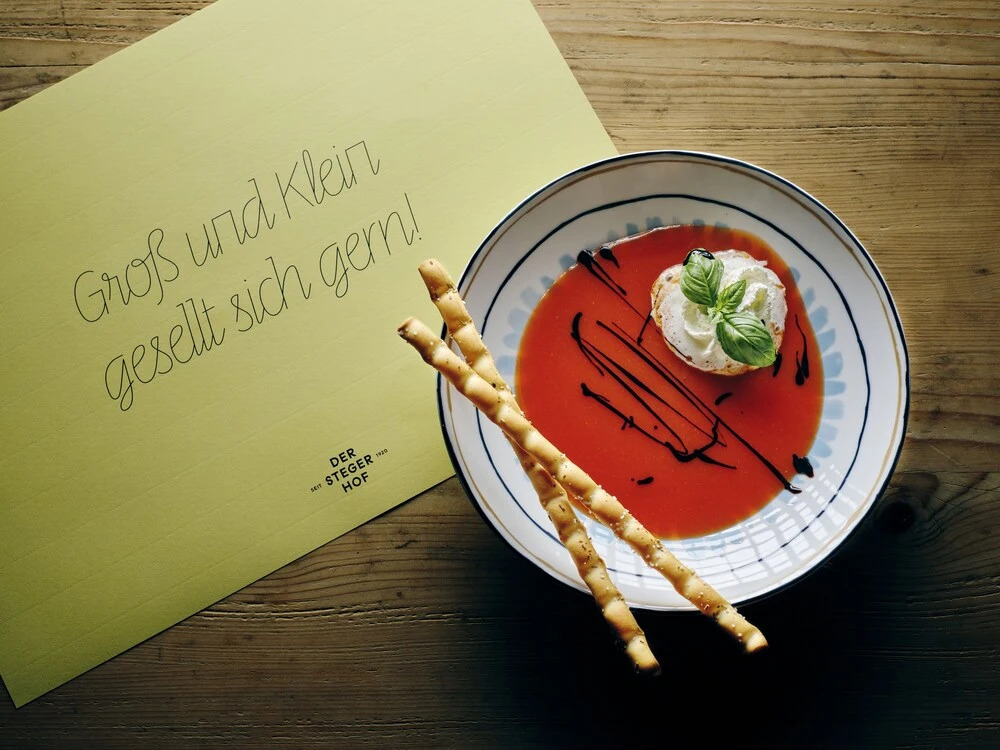 Groß und Klein
gesellt sich gern!
DER
SEIT STEGER 1920
HOF